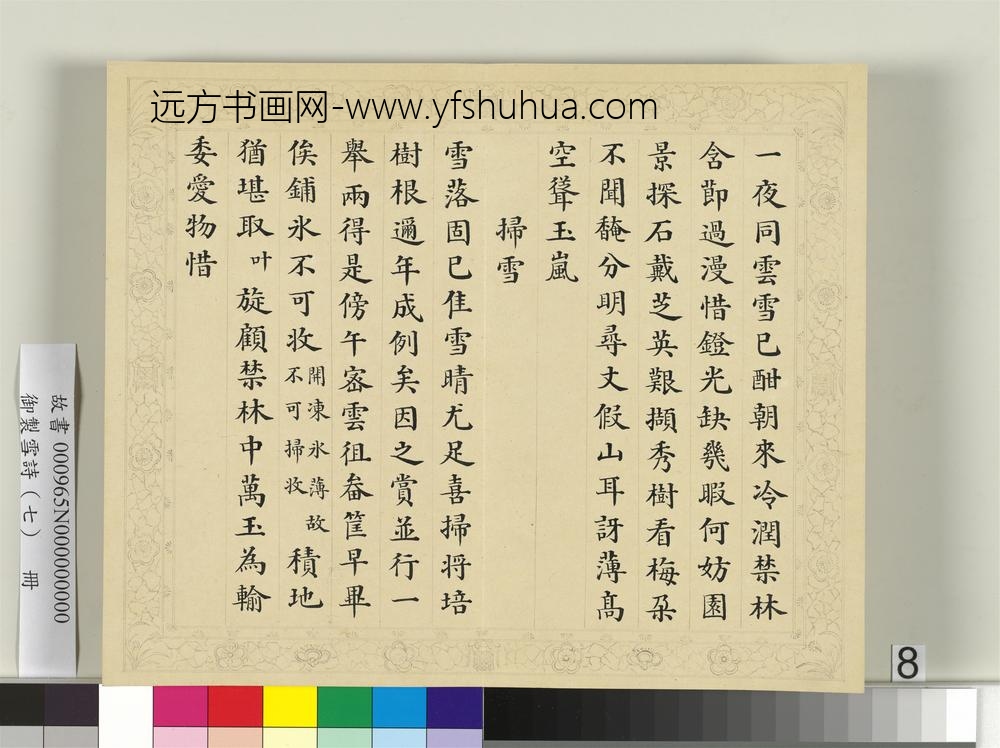 远方书画网-www.yfshuhua.com
一夜同雲雪已酣朝來冷潤禁林
含節過漫惜鐙光缺幾暇何妨園
景探石戴芝英艱擷秀樹看梅朶
不聞馣分明尋丈假山耳訝薄高
空聳玉嵐
掃雪
雪落固已佳雪晴尤足喜掃將培
樹根邇年成例矣因之賞並行一
舉兩得是傍午密雲徂畚筐早畢
俟鋪氷不可收開凍氷薄故不可掃收積地
猶堪取叶旋顧禁林中萬玉為輸
委愛物惜
故書 000965N000000000
御製雪詩(七) 冊
8